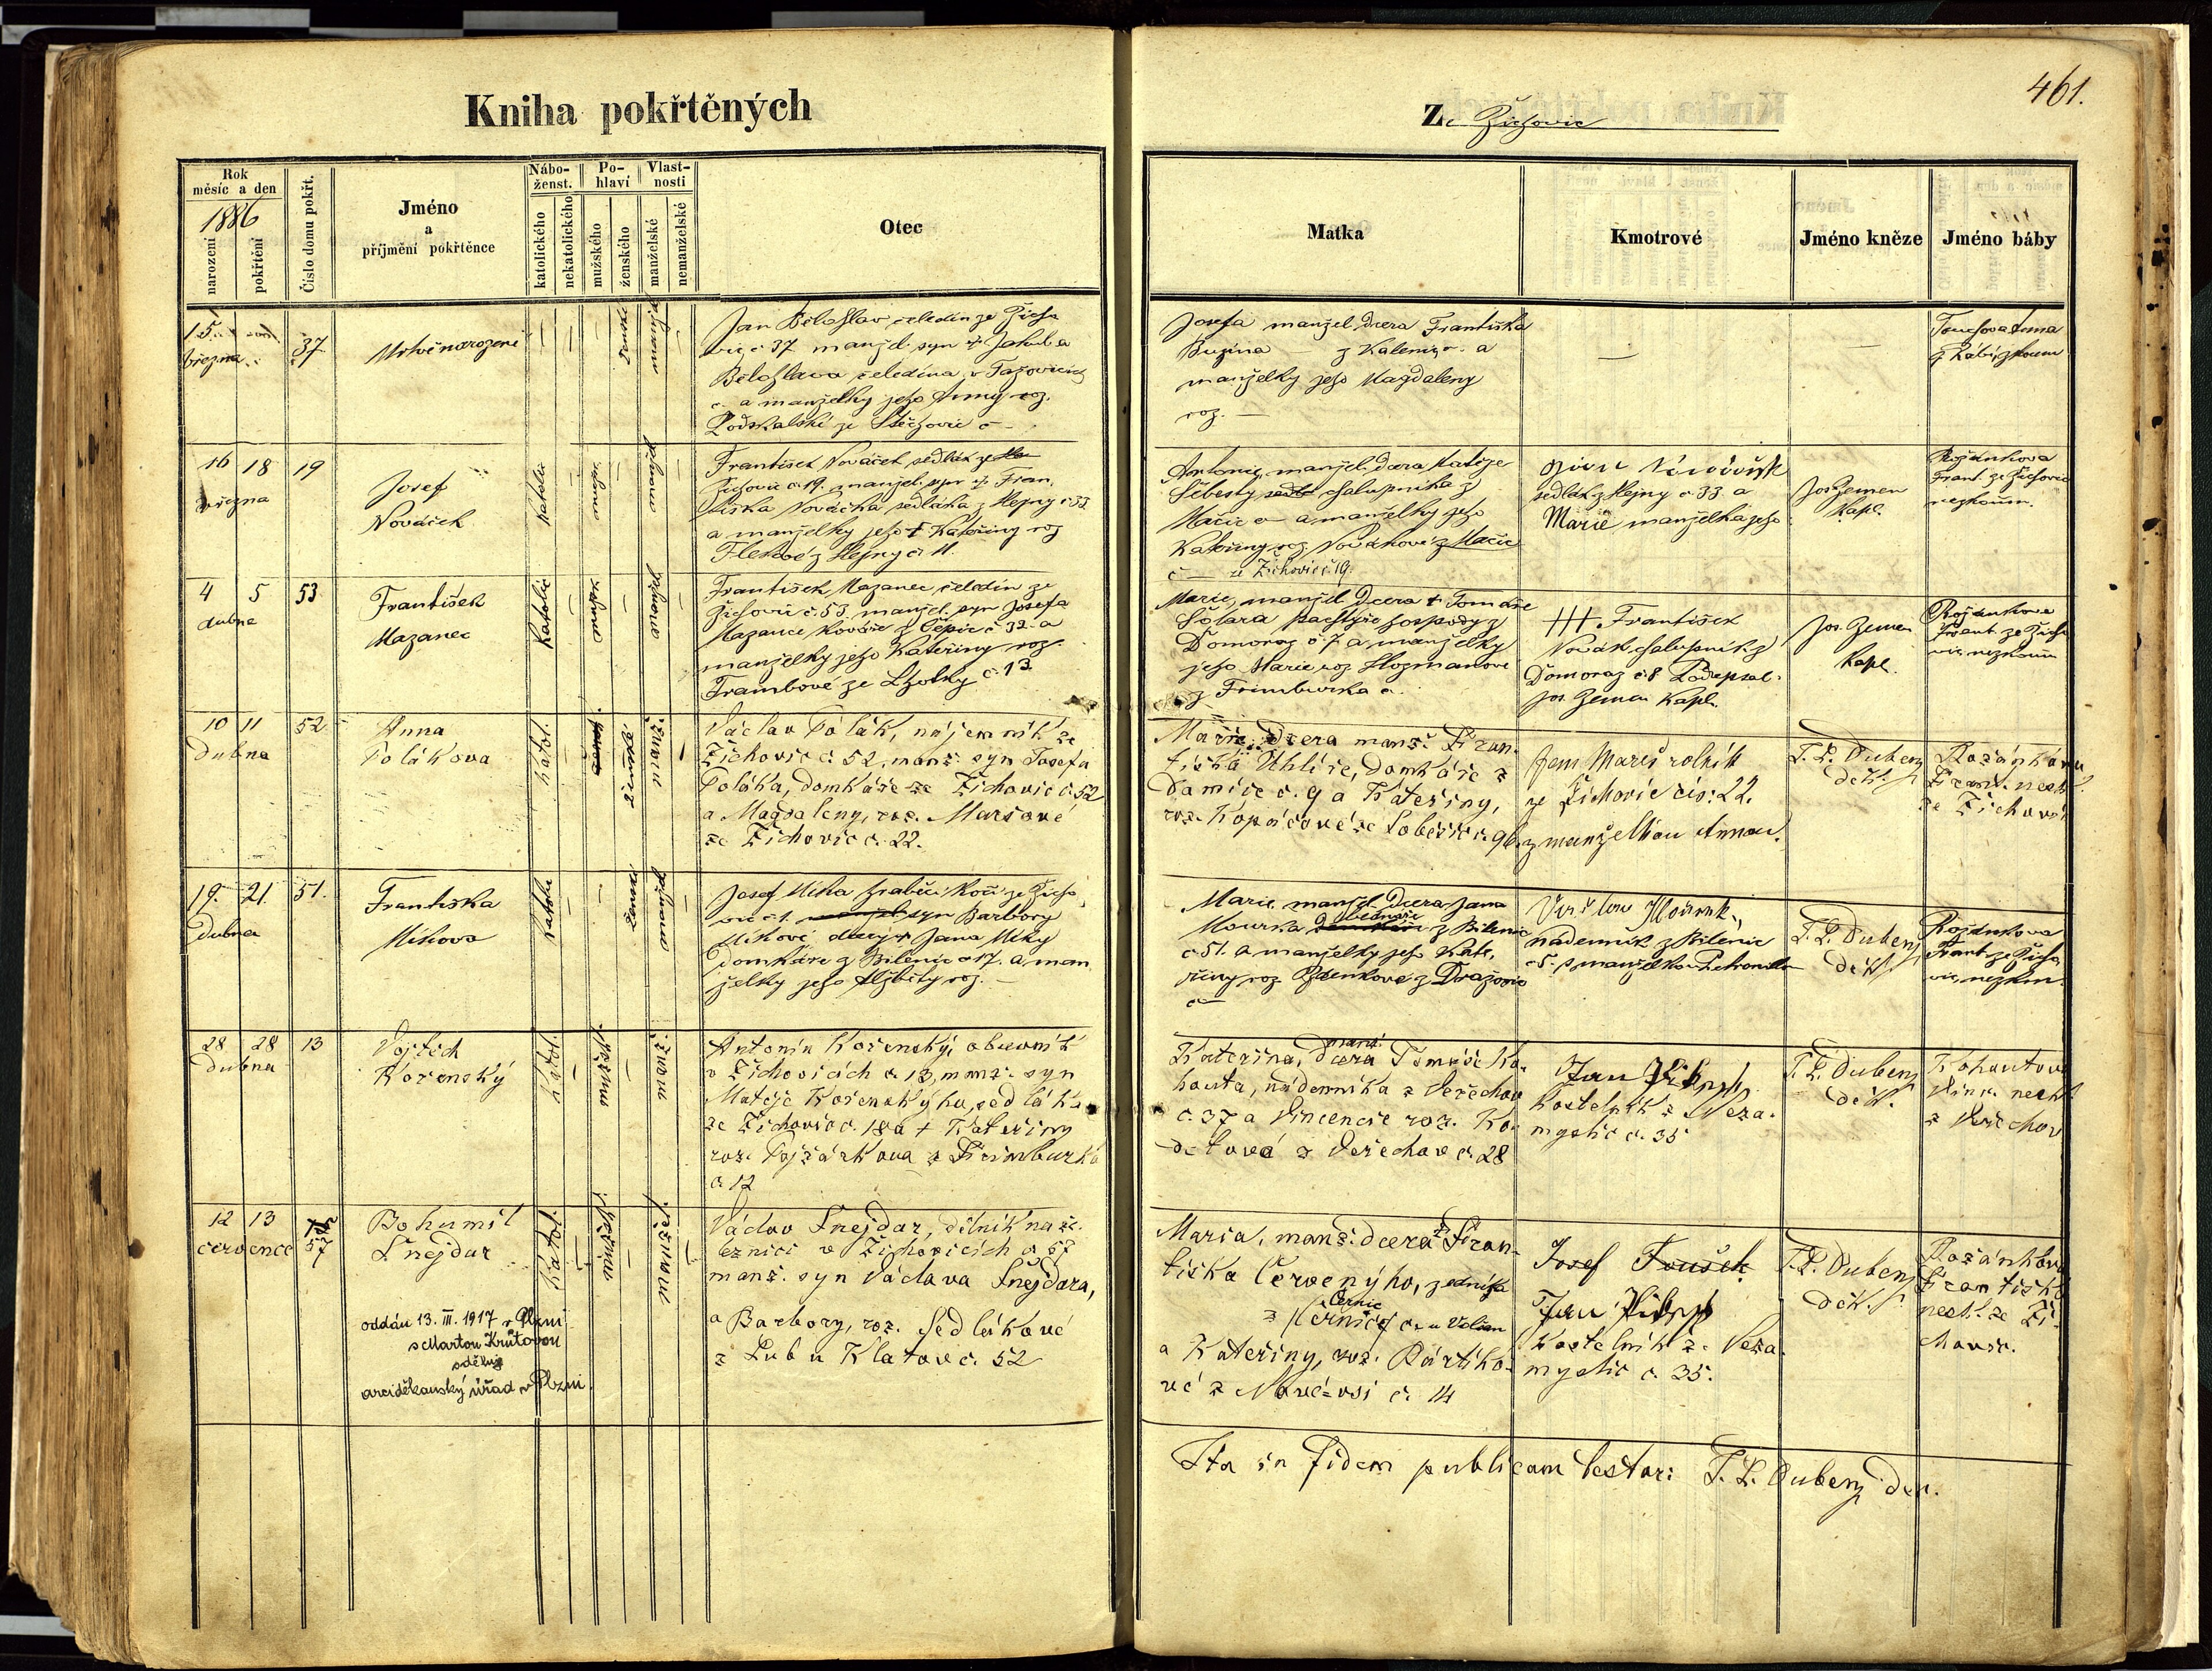 Kniha pokřtěných
Ze Žichovic
461.
Rok
měsíc a den
1886
narození
pokřtění
Číslo domu pokřt.
Jméno
a
příjmění pokřtěnce
Nábo-
ženst.
katolického
nekatolického
Po-
hlaví
mužského
ženského
Vlast-
nosti
manželské
nemanželské
Otec
Matka
Kmotrové
Jméno kněze
Jméno báby
15.
března
37
Mrtvě narozené
Jan Bělohlav čeledín ze Žicho
vic č 37 manžel. syn † Jakuba
Bělohlava čeledína v Tažovicích
č. a manželky jeho Anny roz.
Podskalské ze Střežovic č –
Josefa manžel. dcera Františka
z Kalenic č. a
manželky jeho Magdaleny
roz. –
16 18
března
19
Josef
Nováček
katolic
František Nováček sedlák ze
Žichovic č 19. manžel. syn † Fran.
tiška Nováčka sedláka z Hejny č 33
a manželky jeho † Kateřiny roz
z Hejny č 11.
Antonie, manžel. dcera Matěje
Šebesty chalupníka z
Mačic č – a manželky jeho
Kateřiny roz. Novákové z Mačic
č – ze Žichovic č 19.
sedlák z Hejny č 33 a
Marie manželka jeho
Jos. Zeman
Kapl.
Rožánkova
Frant. ze Žichovic
nezkouш.
4 5
dubna
53
František
Mazanec
Katolic
František Mazanec čeledín ze
Žichovic č. 53. manžel. syn Josefa
Mazance kováře z Čepic č 32. a
manželky jeho Kateřiny roz.
Trambové ze Lhotky č 13
Marie, manžel. dcera † Tomáše
Šolara pachtýře hospody z
Domoraz č 7 a manželky
jeho Marie roz.
z Frimburka č.
+++ František
Novák chalupník z
Domoraz č 8 Podepsal
Jos. Zeman Kapl.
Jos. Zeman
Kapl.
Rožánkova
Frant. ze Žicho
vic nezkouш
10 11
Dubna
52
Anna
Polákova
katol.
Václav Polák, nájemník ze
Žichovic č. 52, manž. syn Josefa
Poláka, domkáře ze Žichovic č. 52
a Magdaleny, roz. Maršové
ze Žichovic č. 22.
Marie, dcera manž. Fran-
tiška Uhlíře, domkáře z
Damíče č. 9 a Kateřiny,
roz. Kopáčové ze Soběšic č. 96.
Jan Mareš rolník
ze Žichovic čís: 22.
z manželkou Annou.
F. L. Dubenz
děk.
Rožánkova
Frant. nezk
ze Žichovic
19. 21.
Dubna
51.
Františka
Míkova
Katolic
Josef Míka hraběcí kočí ze Žicho
vic č 1. syn Barbory
Míkové, dcery † Jana Míky
domkáře z Bílenic č 17. a man
želky jeho Alžběty roz. –
Marie manžel. dcera Jana
Mourka bednáře z Bílenic
č 51. a manželky jeho Kate,
řiny roz. Zdenkové z Dražovic
č –
nádenník z Bílenic
č 5. s manželkou Petronillou
F. L. Dubenz
děk.
Rožánkova
Frant. ze Žicho
vic, nezkouш.
28 28
Dubna
13
Vojtěch
Kořenský
Katol.
Antonín Kořenský, obuvník
v Žichovicích č. 13, manž. syn
Matěje Kořenskýho, sedláka
ze Žichovic č. 18 a † Kateřiny
roz. Pojžárkova z Frimburka
č 12
Kateřina, manž. dcera Tomáše Ko-
houta, nádenníka z Veřechov
č. 37 a Vincencie roz. Ko-
detové z Veřechov č. 28
Jan
kostelník z Neza-
myslic č. 35
F. L. Dubenz
děk.
Kohoutova
Vinc. nezk
z Veřechov
12 13
července
57
Bohumil
Šnejdar
Katol.
oddán 13. III. 1917 v Plzni
s Martou Krutovou
sděluje
arciděkanský úřad v Plzni.
Václav Šnejdar, dělník na že-
leznici v Žichovicích č. 57
manž. syn Václava Šnejdara,
a Barbory, roz. Sedlákové
z Lub u Klatov č. 52
Maria, manž. dcera † Fran-
tiška Červenýho, zedníka
z Černic č. u Volian
a Kateřiny, roz. Bártíko-
vé z Nové-vsi č. 14
Josef Toušek
Jan
kostelník z Neza-
myslic č. 35.
F. L. Dubenz
děk.
Rožánkova
Františka
nezk. ze Ži-
chovic.
Ita in fidem publicam testor: F. L. Dubenz děk.